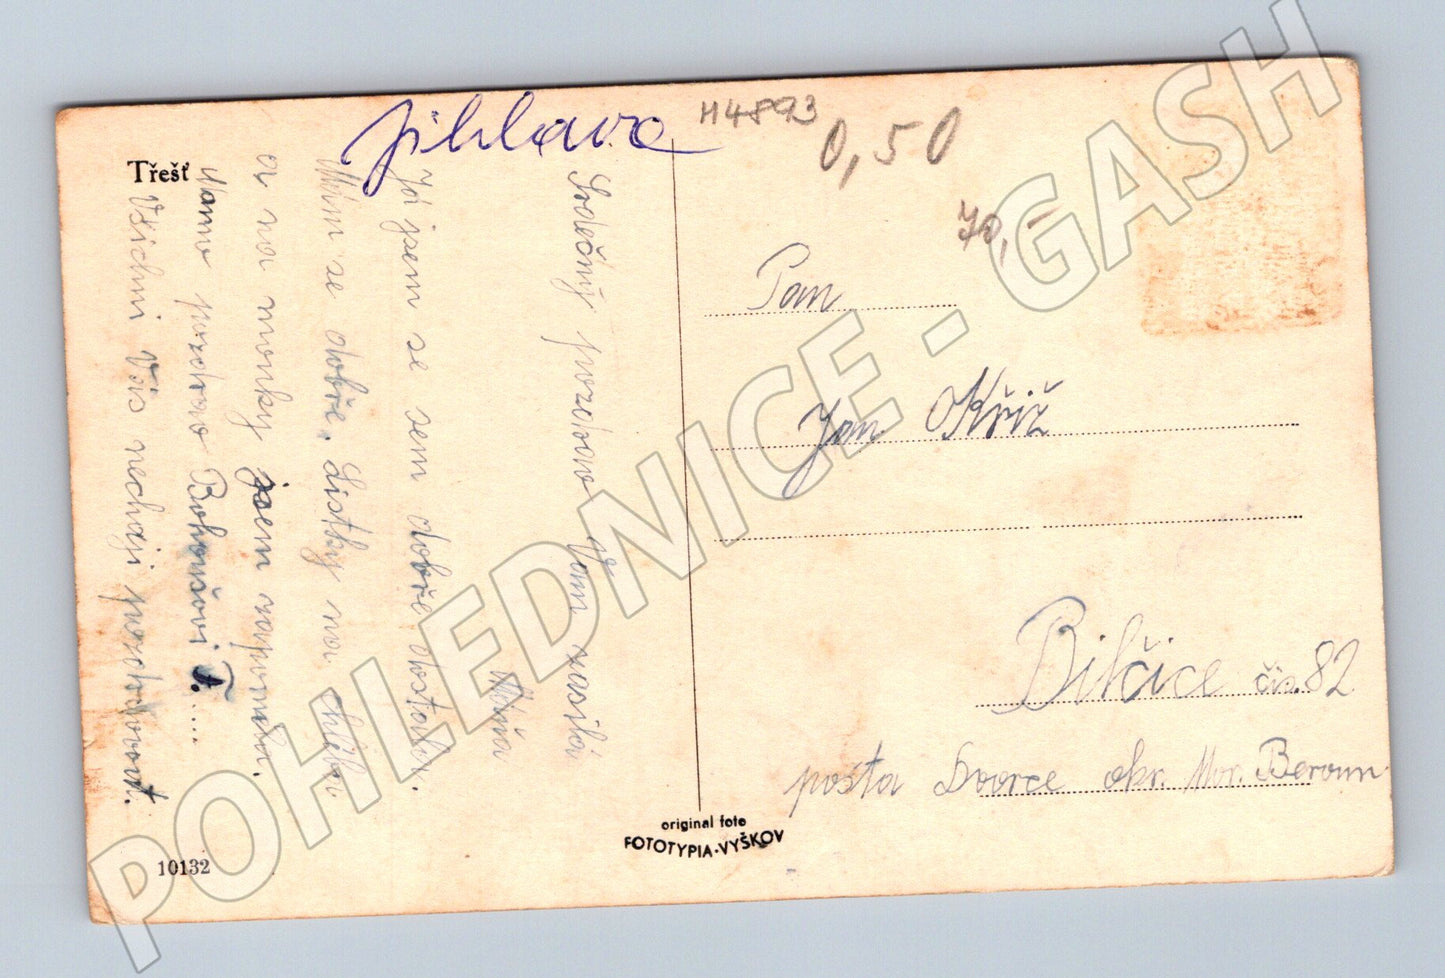 Jihlava
H4893
0,50
70,-
Třešť
Srdečný pozdrav Vám zasílá
Míňa
Já jsem se sem dobře dostala.
Mám se dobře. Lístky na chleba
a na mouky jsem zapoměla.
Mamo pozdrav Bohoušovi T....
Všichni Vás nechají pozdravovat.
Pan
Jan Kříž
Bilčice čís. 82
pošta Dvorce okr. Mor. Beroun
original foto
FOTOTYPIA-VYŠKOV
10132
POHLEDNICE - GASH